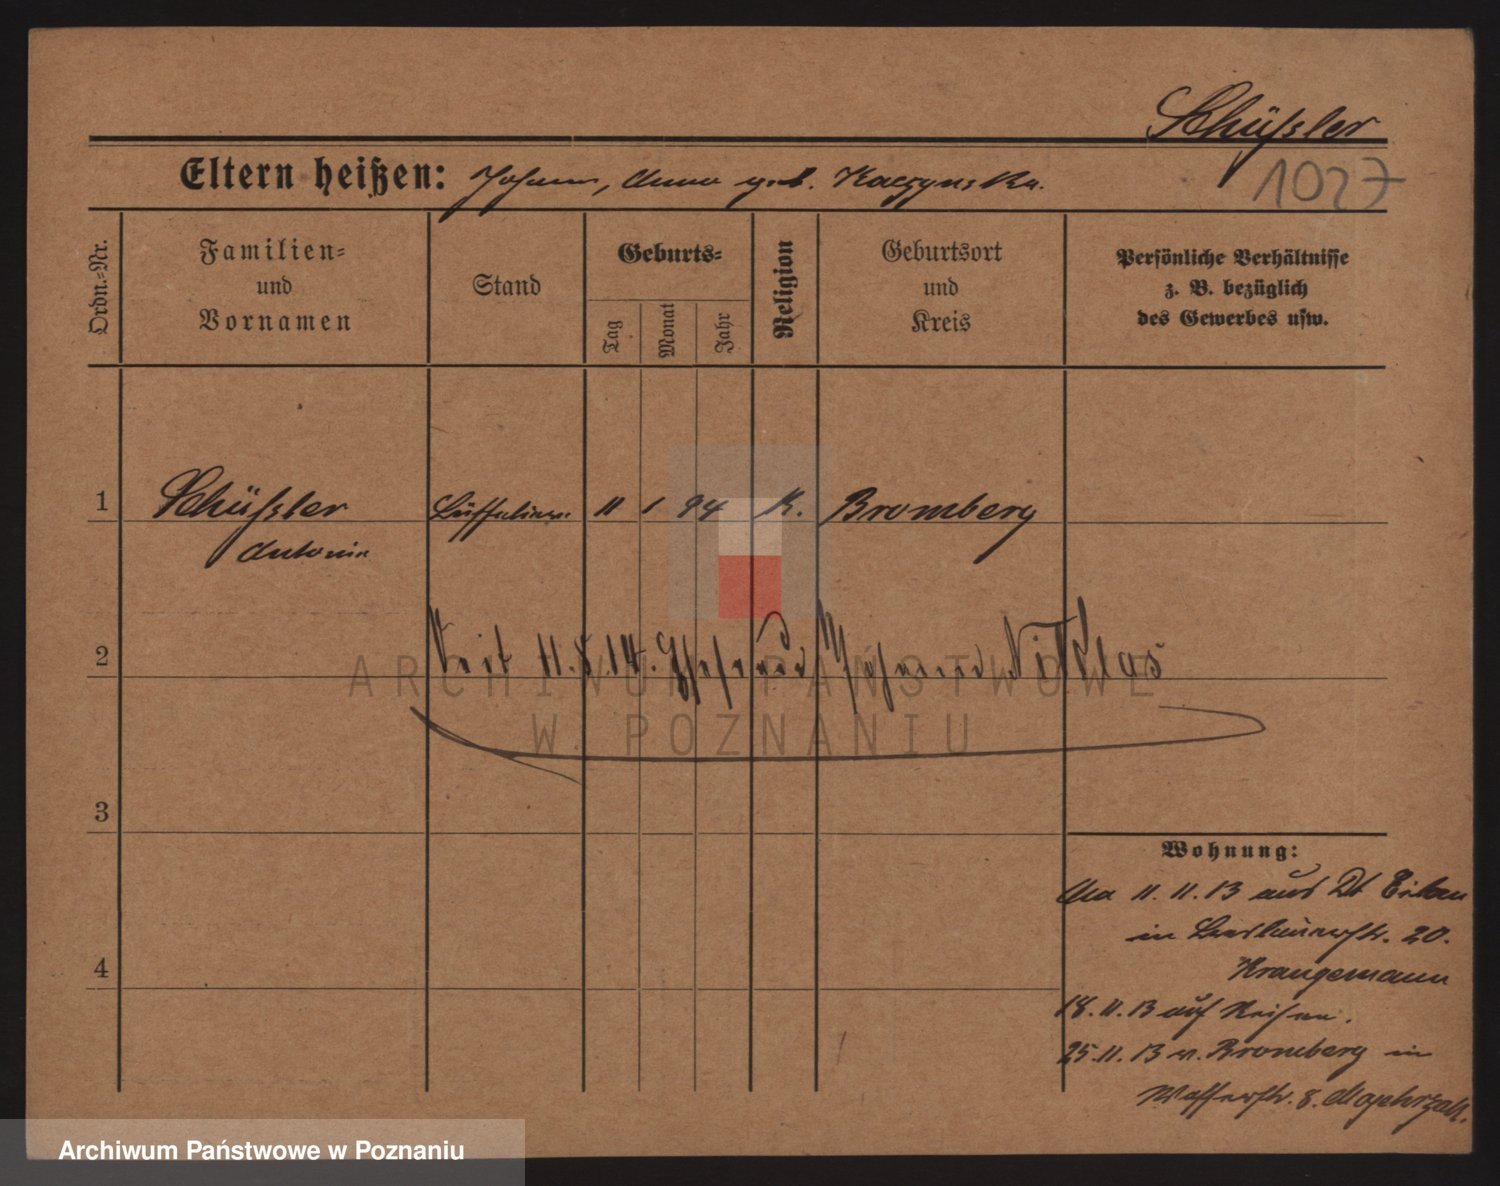 Schüßler
1027
Eltern heißen: Johann, Anna geb. Kaczynska.
Ordn.=Nr.
Familien=
und
Vornamen
Stand
Geburts=
Tag
Monat
Jahr
Religion
Geburtsort
und
Kreis
Persönliche Verhältnisse
z. B. bezüglich
des Gewerbes usw.
1 Schüßler 11 1 94 K. Bromberg
Antonie
2 Seit 11.8.14. Ehefrau Johann Nitklas
ARCHIWUM PAŃSTWOWE
W POZNANIU
3
Wohnung:
11. 11. 13 aus Dt Eilau
in 20.
Krangemann
4
18. 11. 13 auf Reisen.
25. 11. 13 v. Bromberg in
Wasserstr. 8.
Archiwum Państwowe w Poznaniu